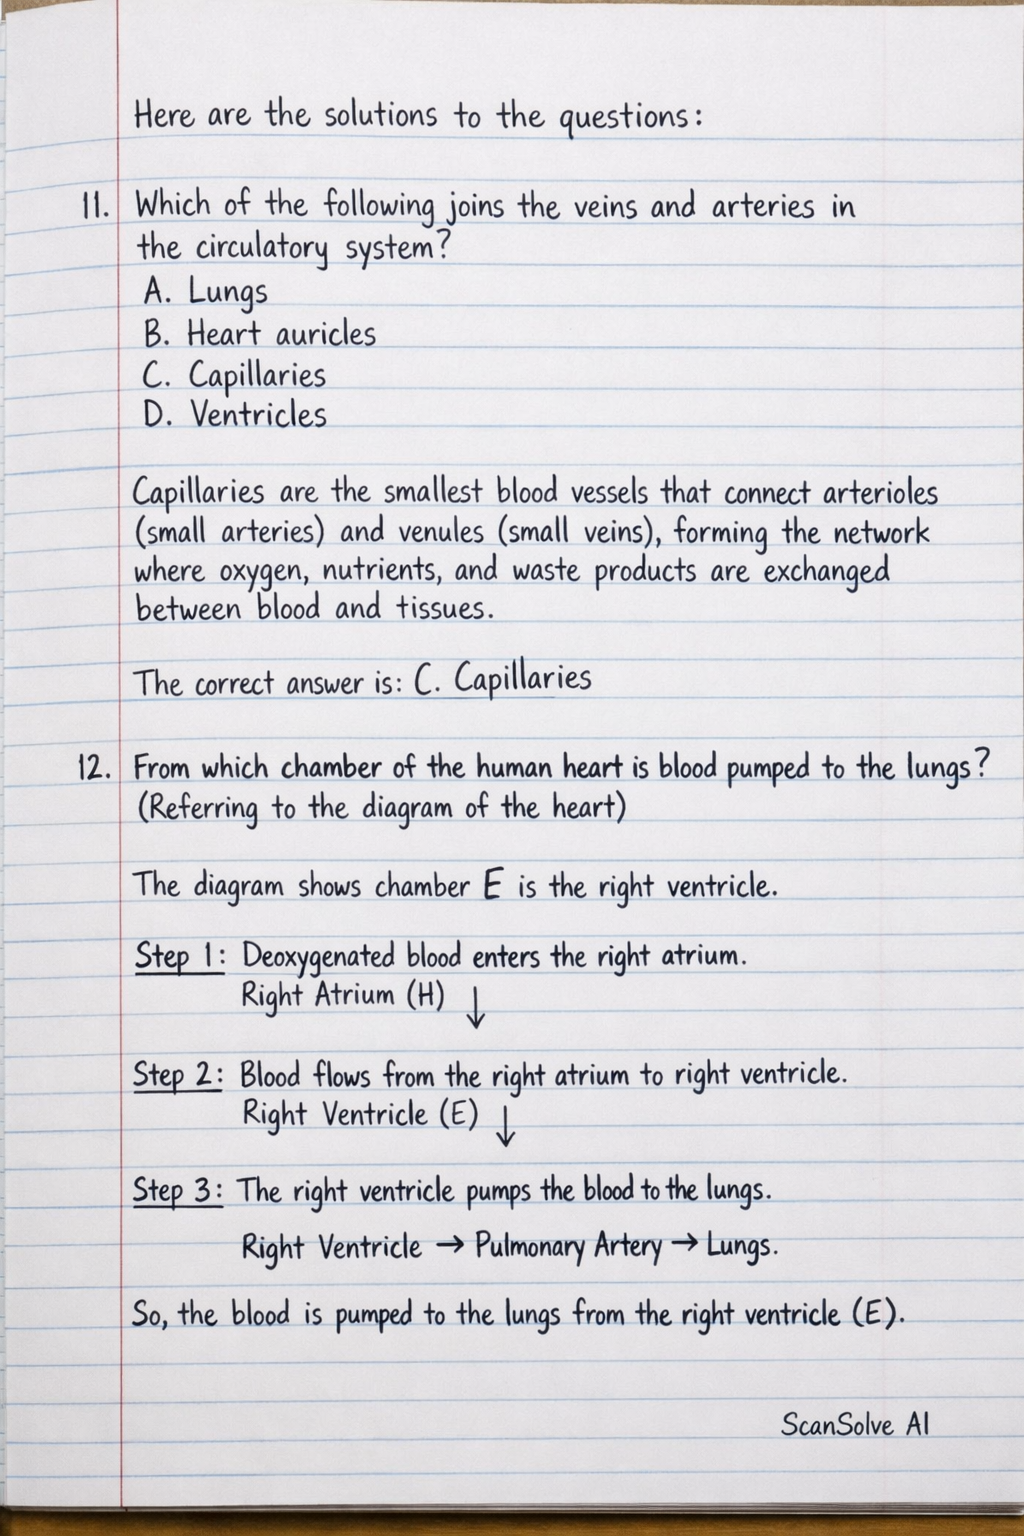 Here are the solutions to the questions:
11. Which of the following joins the veins and arteries in
the circulatory system?
A. Lungs
B. Heart auricles
C. Capillaries
D. Ventricles
Capillaries are the smallest blood vessels that connect arterioles
(small arteries) and venules (small veins), forming the network
where oxygen, nutrients, and waste products are exchanged
between blood and tissues.
The correct answer is: C. Capillaries
12. From which chamber of the human heart is blood pumped to the lungs?
(Referring to the diagram of the heart)
The diagram shows chamber E is the right ventricle.
Step 1: Deoxygenated blood enters the right atrium.
Right Atrium (H) ↓
Step 2: Blood flows from the right atrium to right ventricle.
Right Ventricle (E) ↓
Step 3: The right ventricle pumps the blood to the lungs.
Right Ventricle → Pulmonary Artery → Lungs.
So, the blood is pumped to the lungs from the right ventricle (E).
ScanSolve AI